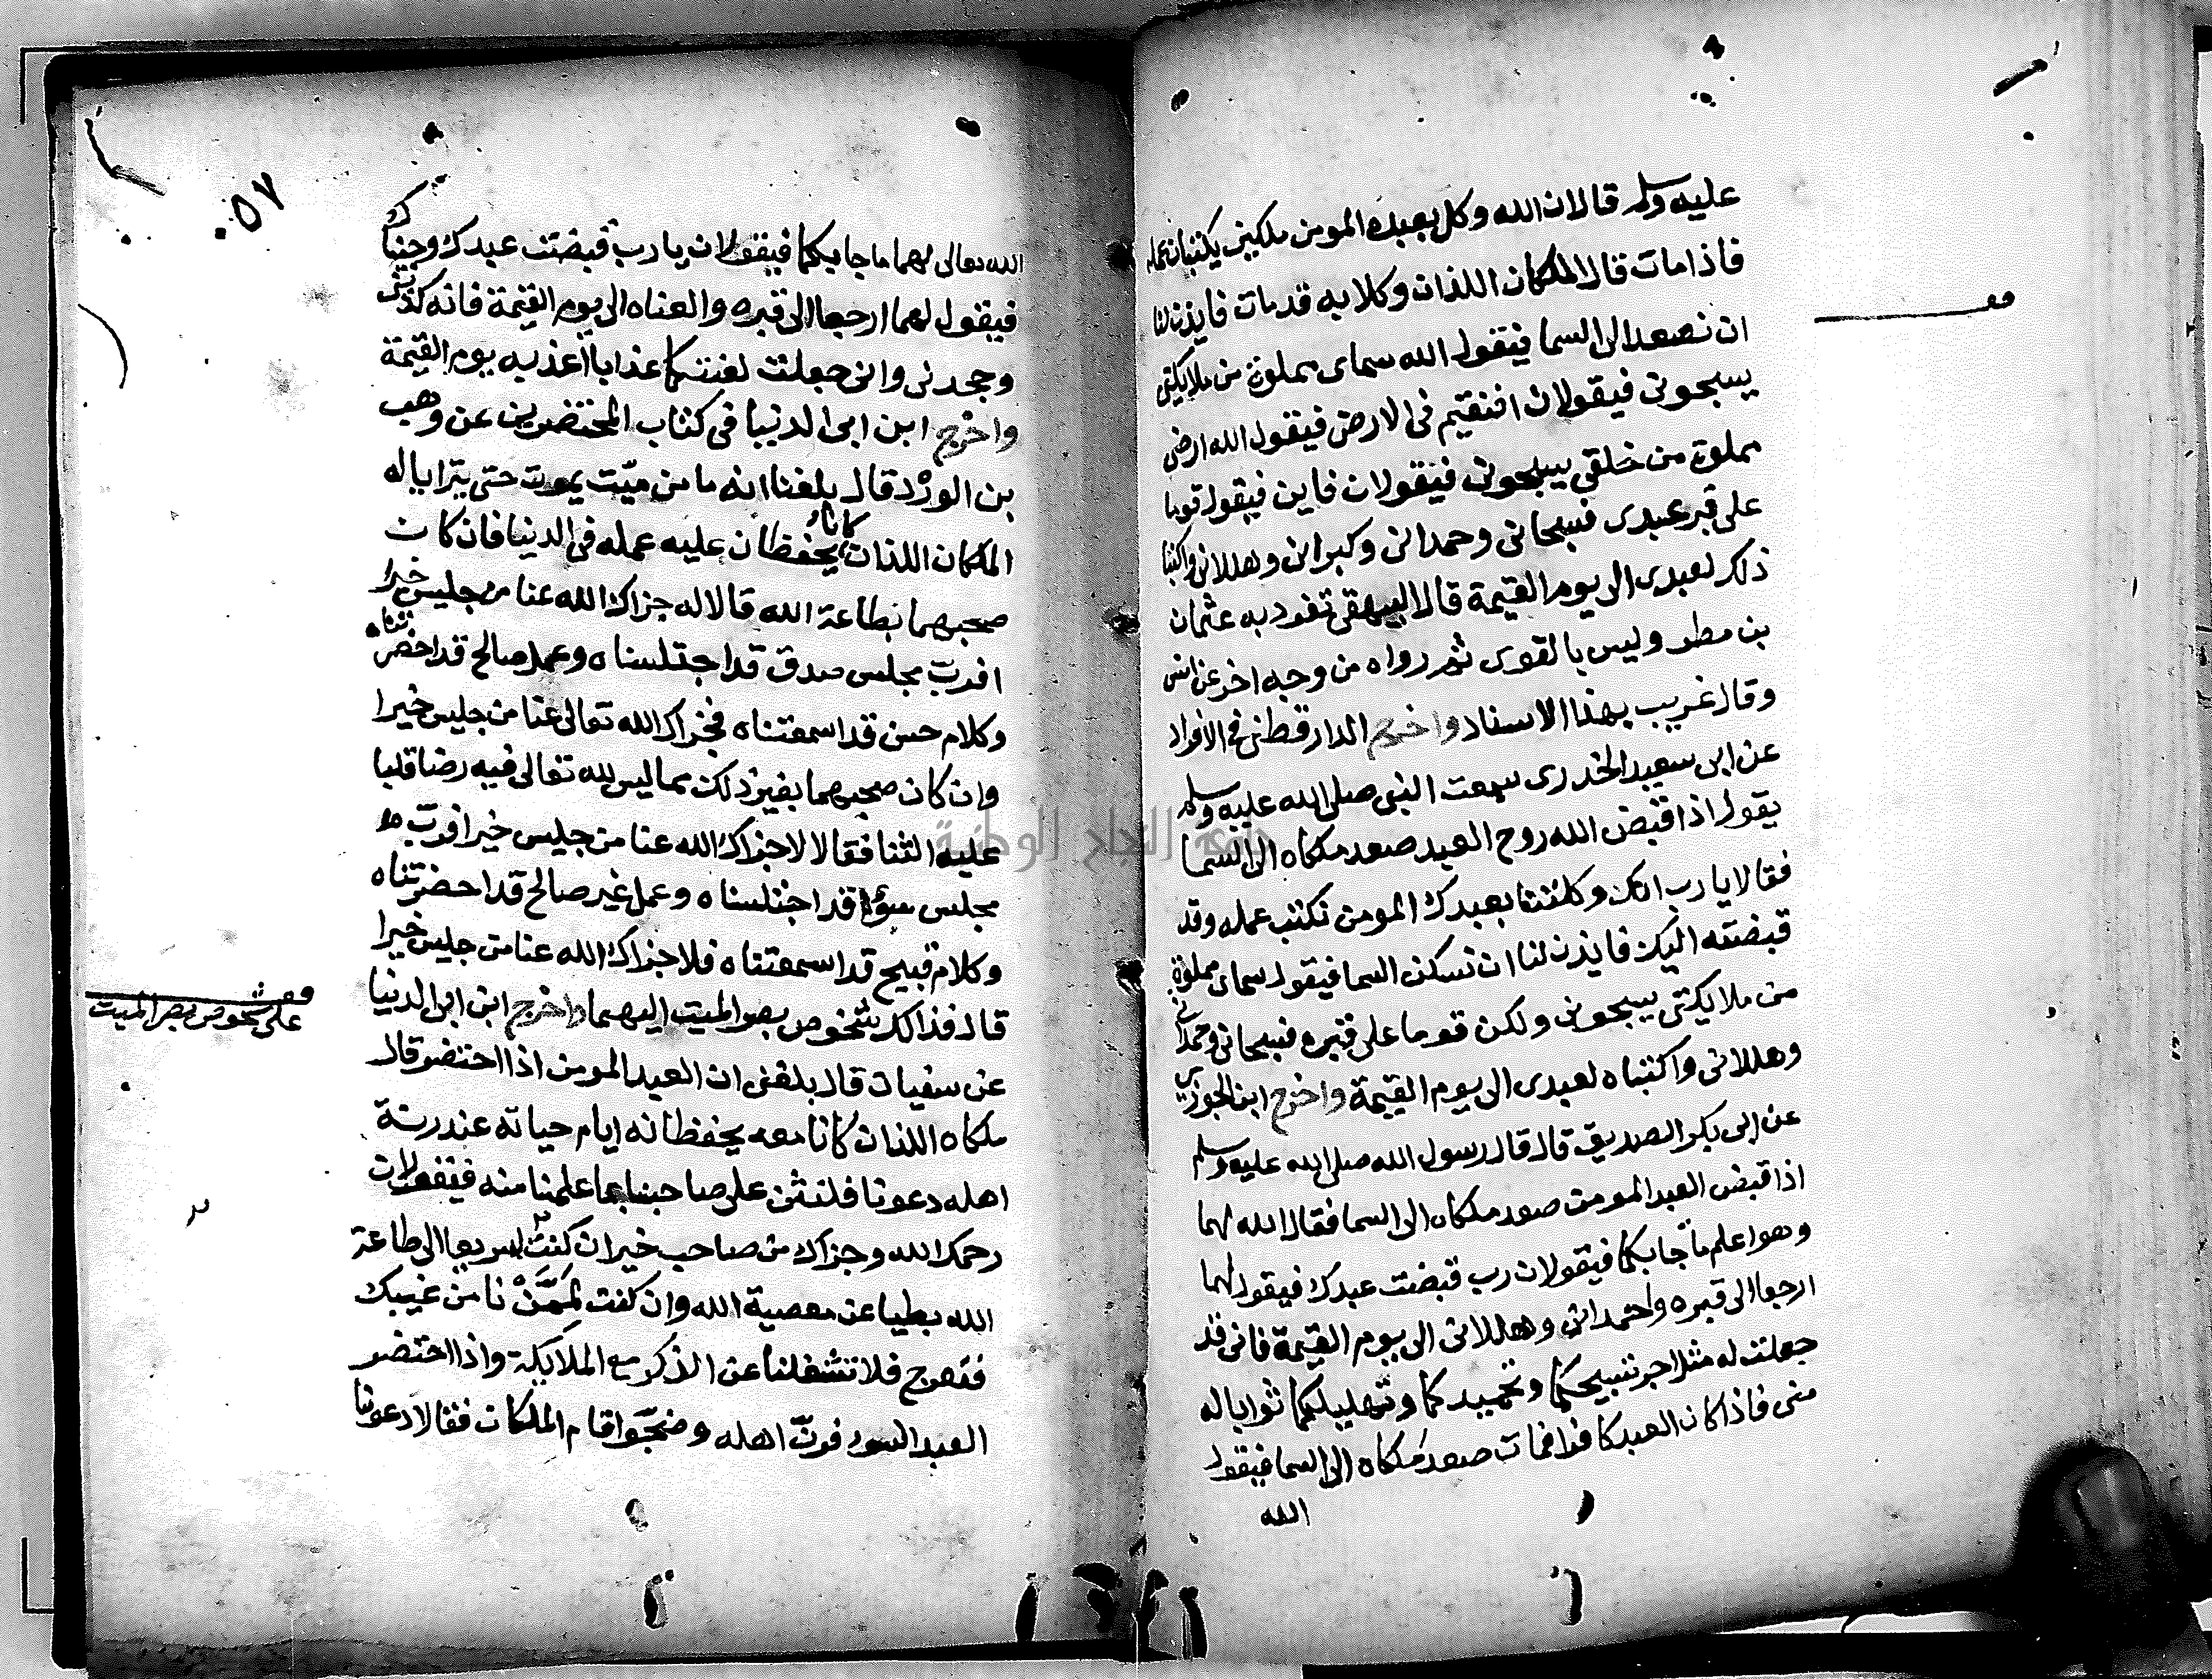 عليه وسلم قال ان الله وكل بعبده المومن ملكين يكتبان عمله
فاذا مات قال الملكان اللذان وكلا به قد مات فايذن لنا
ان نصعد الى السما فيقول الله سماى مملوة من ملايكتى
يسبحونى فيقولان افنقيم فى الارض فيقول الله ارضى
مملوة من خلقى يسبحونى فيقولان فاين فيقول قوما
على قبر عبدى فسبحانى وحمدانى وكبرانى وهللانى واكتبا
ذلك لعبدى الى يوم القيمة قال البيهقى تفرد به عثمان
بن مطر وليس بالقوى ثم رواه من وجه اخر عن انس
وقال غريب بهذا الاسناد واخرج الدارقطنى فى الافراد
عن ابى سعيد الخدرى سمعت النبى صلى الله عليه وسلم
يقول اذا قبض الله روح العبد صعد ملكاه الى السما
فقالا يا رب انك وكلتنا بعبدك المومن نكتب عمله وقد
قبضته اليك فايذن لنا ان نسكن السما فيقول سماى مملوة
من ملايكتى يسبحونى ولكن قوما على قبره فسبحانى وحمدانى
وهللانى واكتباه لعبدى الى يوم القيمة واخرج ابن الجوزى
عن ابى بكر الصديق قال قال رسول الله صلى الله عليه وسلم
اذا قبض العبد المومن صعد ملكاه الى السما فقال الله لهما
وهو اعلم ما جا بكما فيقولان رب قبضت عبدك فيقول لهما
ارجعا الى قبره واحمدانى وهللانى الى يوم القيمة فانى قد
جعلت له مثل اجر تسبيحكما وتحميدكما وتهليلكما ثوابا له
منى فاذا كان العبد كافرا فمات صعد ملكاه الى السما فيقول
الله
وقف
٥٧
الله تعالى لهما ما جا بكما فيقولان يا رب قبضت عبدك وجيناك
فيقول لهما ارجعا الى قبره والعناه الى يوم القيمة فانه كذبنى
وجحدنى وانى جعلت لعنتكما عذابا اعذبه يوم القيمة
واخرج ابن ابى الدنيا فى كتاب المحتضرين عن وهب
بن الورد قال بلغنا انه ما من ميت يموت حتى يترايا له
الملكان اللذان كانا يحفظان عليه عمله فى الدنيا فان كان
صحبهما بطاعة الله قالا له جزاك الله عنا من جليس خيرا
افرب مجلس صدق قد اجتلسناه وعمل صالح قد احضرتناه
وكلام حسن قد اسمعتناه فجزاك الله تعالى عنا من جليس خيرا
وان كان صحبهما بغير ذلك مما ليس لله تعالى فيه رضا قلبا
عليه الثنا فقالا لا جزاك الله عنا من جليس خيرا فرب
مجلس سؤ قد اجتلسناه وعمل غير صالح قد احضرتناه
وكلام قبيح قد اسمعتناه فلا جزاك الله عنا من جليس خيرا
قال فذالك شخوص بصر الميت اليهما واخرج ابن ابى الدنيا
عن سفيان قال بلغنى ان العبد المومن اذا احتضر قال
ملكاه اللذان كانا معه يحفظانه ايام حياته عند رنة
اهله دعونا فلنثن على صاحبنا بما علمنا منه فيقولان
رحمك الله وجزاك من صاحب خيرا ان كنت لسريعا الى طاعة
الله بطيا عن معصية الله وان كنت لممن نامن غيبك
فنعرج فلا تشغلنا عن الذكر مع الملايكة واذا احتضر
العبد السوء فرن اهله وضجوا قام الملكان فقالا دعونا
وقف
على شخوص بصر الميت